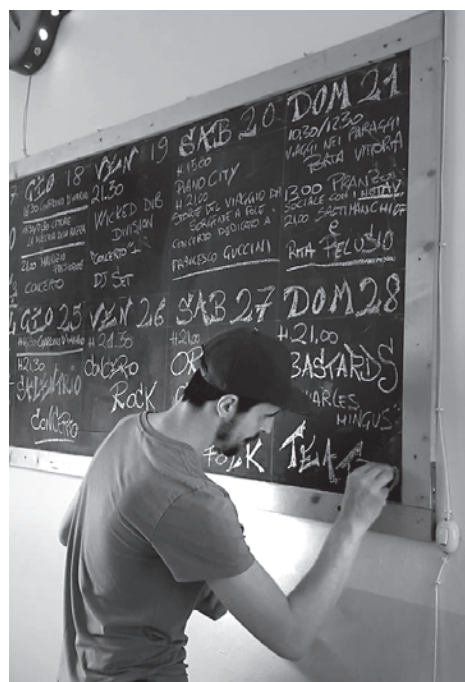 GIO 18
CONCERTO
VEN 19
21.30
WICKED DUB
DIVISION
CONCERTO
DJ SET
SAB 20
H 15.00
PIANO CITY
H 21.00
STORIE DEL VIAGGIO DI
SORGENTE A FOCE
CONCERTO DEDICATO A
FRANCESCO GUCCINI
DOM 21
10.30/12.30
VIAGGI NEI PARAGGI
PORTA VITTORIA
13.00 PRANZO
SOCIALE CON I NOTAV
21.00
E
RITA PELUSIO
GIO 25
H 21.30
CONCERTO
VEN 26
H 21.30
CONCERTO
ROCK
SAB 27
H 21.00
OR
FOLK
DOM 28
H 21.00
BASTARDS
CHARLES
MINGUS"
TEAT